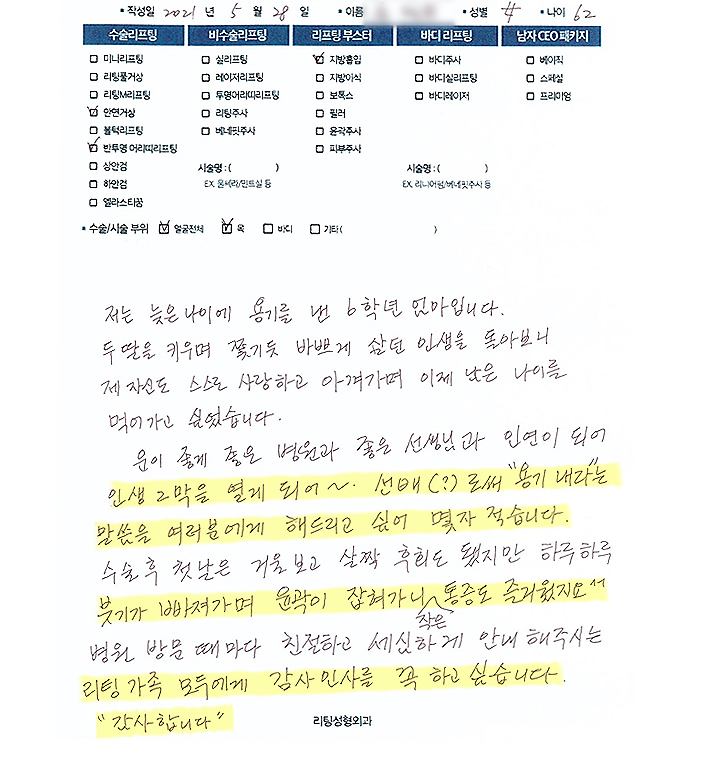 작성일 2021 년 5 월 28 일 이름 성별 女 나이 62
수술리프팅 비수술리프팅 리프팅 부스터 바디 리프팅 남자 CEO 패키지
미니리프팅 실리프팅 지방흡입 바디주사 베이직
리팅풀거상 레이저리프팅 지방이식 바디실리프팅 스페셜
리팅M리프팅 투명어리띠리프팅 보톡스 바디레이저 프리미엄
안면거상 리팅주사 필러
볼턱리프팅 베네핏주사 윤곽주사
반투명 어리띠리프팅 피부주사
상안검 시술명 : ( ) 시술명 : ( )
하안검 EX. 울쎄라/민트실 등 EX. 리니어펌/베네핏주사 등
엘라스티꿈
수술/시술 부위 얼굴전체 목 바디 기타 ( )
저는 늦은 나이에 용기를 낸 6학년 엄마입니다.
두 딸을 키우며 쫓기듯 바쁘게 살던 인생을 돌아보니
제 자신도 스스로 사랑하고 아껴가며 이제 남은 나이를
먹어가고 싶었습니다.
운이 좋게 좋은 병원과 좋은 선생님과 인연이 되어
인생 2막을 열게 되어~. 선배(?)로써 "용기 내라"는
말씀을 여러분에게 해드리고 싶어 몇자 적습니다.
수술후 첫날은 거울보고 살짝 후회도 됐지만 하루하루
붓기가 빠져가며 윤곽이 잡혀가니 작은 통증도 즐거웠지요
병원 방문 때마다 친절하고 세심하게 안내해주시는
리팅가족 모두에게 감사인사를 꼭 하고 싶습니다.
"감사합니다"
리팅성형외과